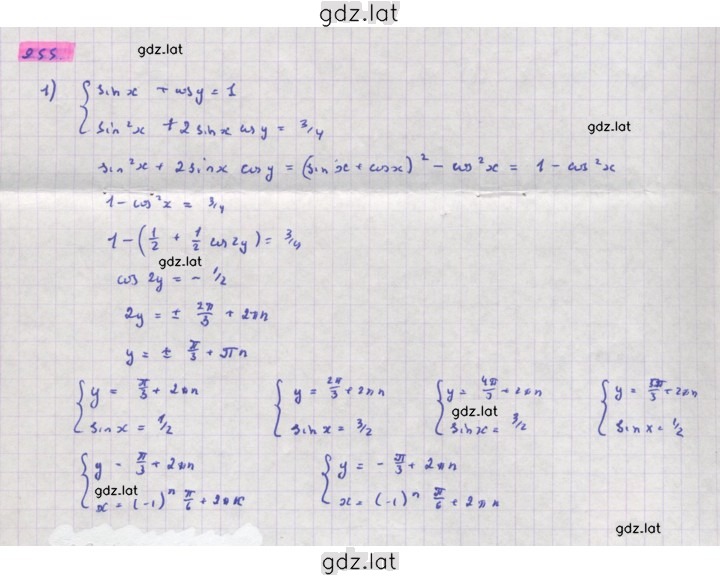 gdz.lat
955.
gdz.lat
1) { sin x + cos y = 1
sin²x + 2 sin x cos y = 3/4
gdz.lat
sin²x + 2 sin x cos y = (sin x + cos x)² − cos²x = 1 − cos²x
1 − cos²x = 3/4
1 − (1/2 + 1/2 cos 2y) = 3/4
gdz.lat
cos 2y = − 1/2
2y = ± 2π/3 + 2πn
y = ± π/3 + πn
{ y = π/3 + 2πn { y = 2π/3 + 2πn { y = 4π/3 + 2πn { y = 5π/3 + 2πn
gdz.lat
sin x = 1/2 sin x = 3/2 sin x = 3/2 sin x = 1/2
{ y − π/3 + 2πn { y = − π/3 + 2πn
gdz.lat
x = (−1)ⁿ π/6 + 2πk x = (−1)ⁿ π/6 + 2πn
gdz.lat
gdz.lat